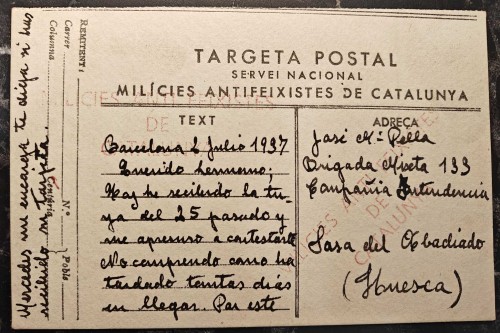 TARGETA POSTAL
SERVEI NACIONAL
MILÍCIES ANTIFEIXISTES DE CATALUNYA
TEXT
Barcelona 2 Julio 1937
Querido hermano;
Hoy he recibido la tu-
ya del 25 pasado y
me apresuro a contestarte
No comprendo como ha
tardado tantos dias
en llegar. Por este
ADREÇA
José Mª Pella
Brigada Mixta 133
Compañia Intendencia
Sasa del Abadiado
(Huesca)
REMITENT:
Carrer
Columna
Nº
Centúria
Poble
Mercedes me encarga te diga si has
recibido su tarjeta.
MILÍCIES ANTIFEIXISTES
DE
CATALUNYA